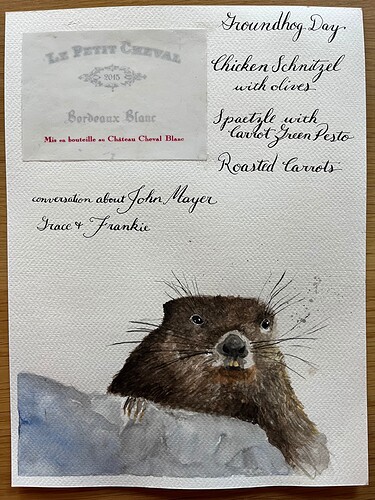 LE PETIT CHEVAL
2015
Bordeaux Blanc
Mis en bouteille au Château Cheval Blanc
Groundhog Day
Chicken Schnitzel
with olives
Spaetzle with
Carrot Green Pesto
Roasted Carrots
conversation about John Mayer
Grace & Frankie